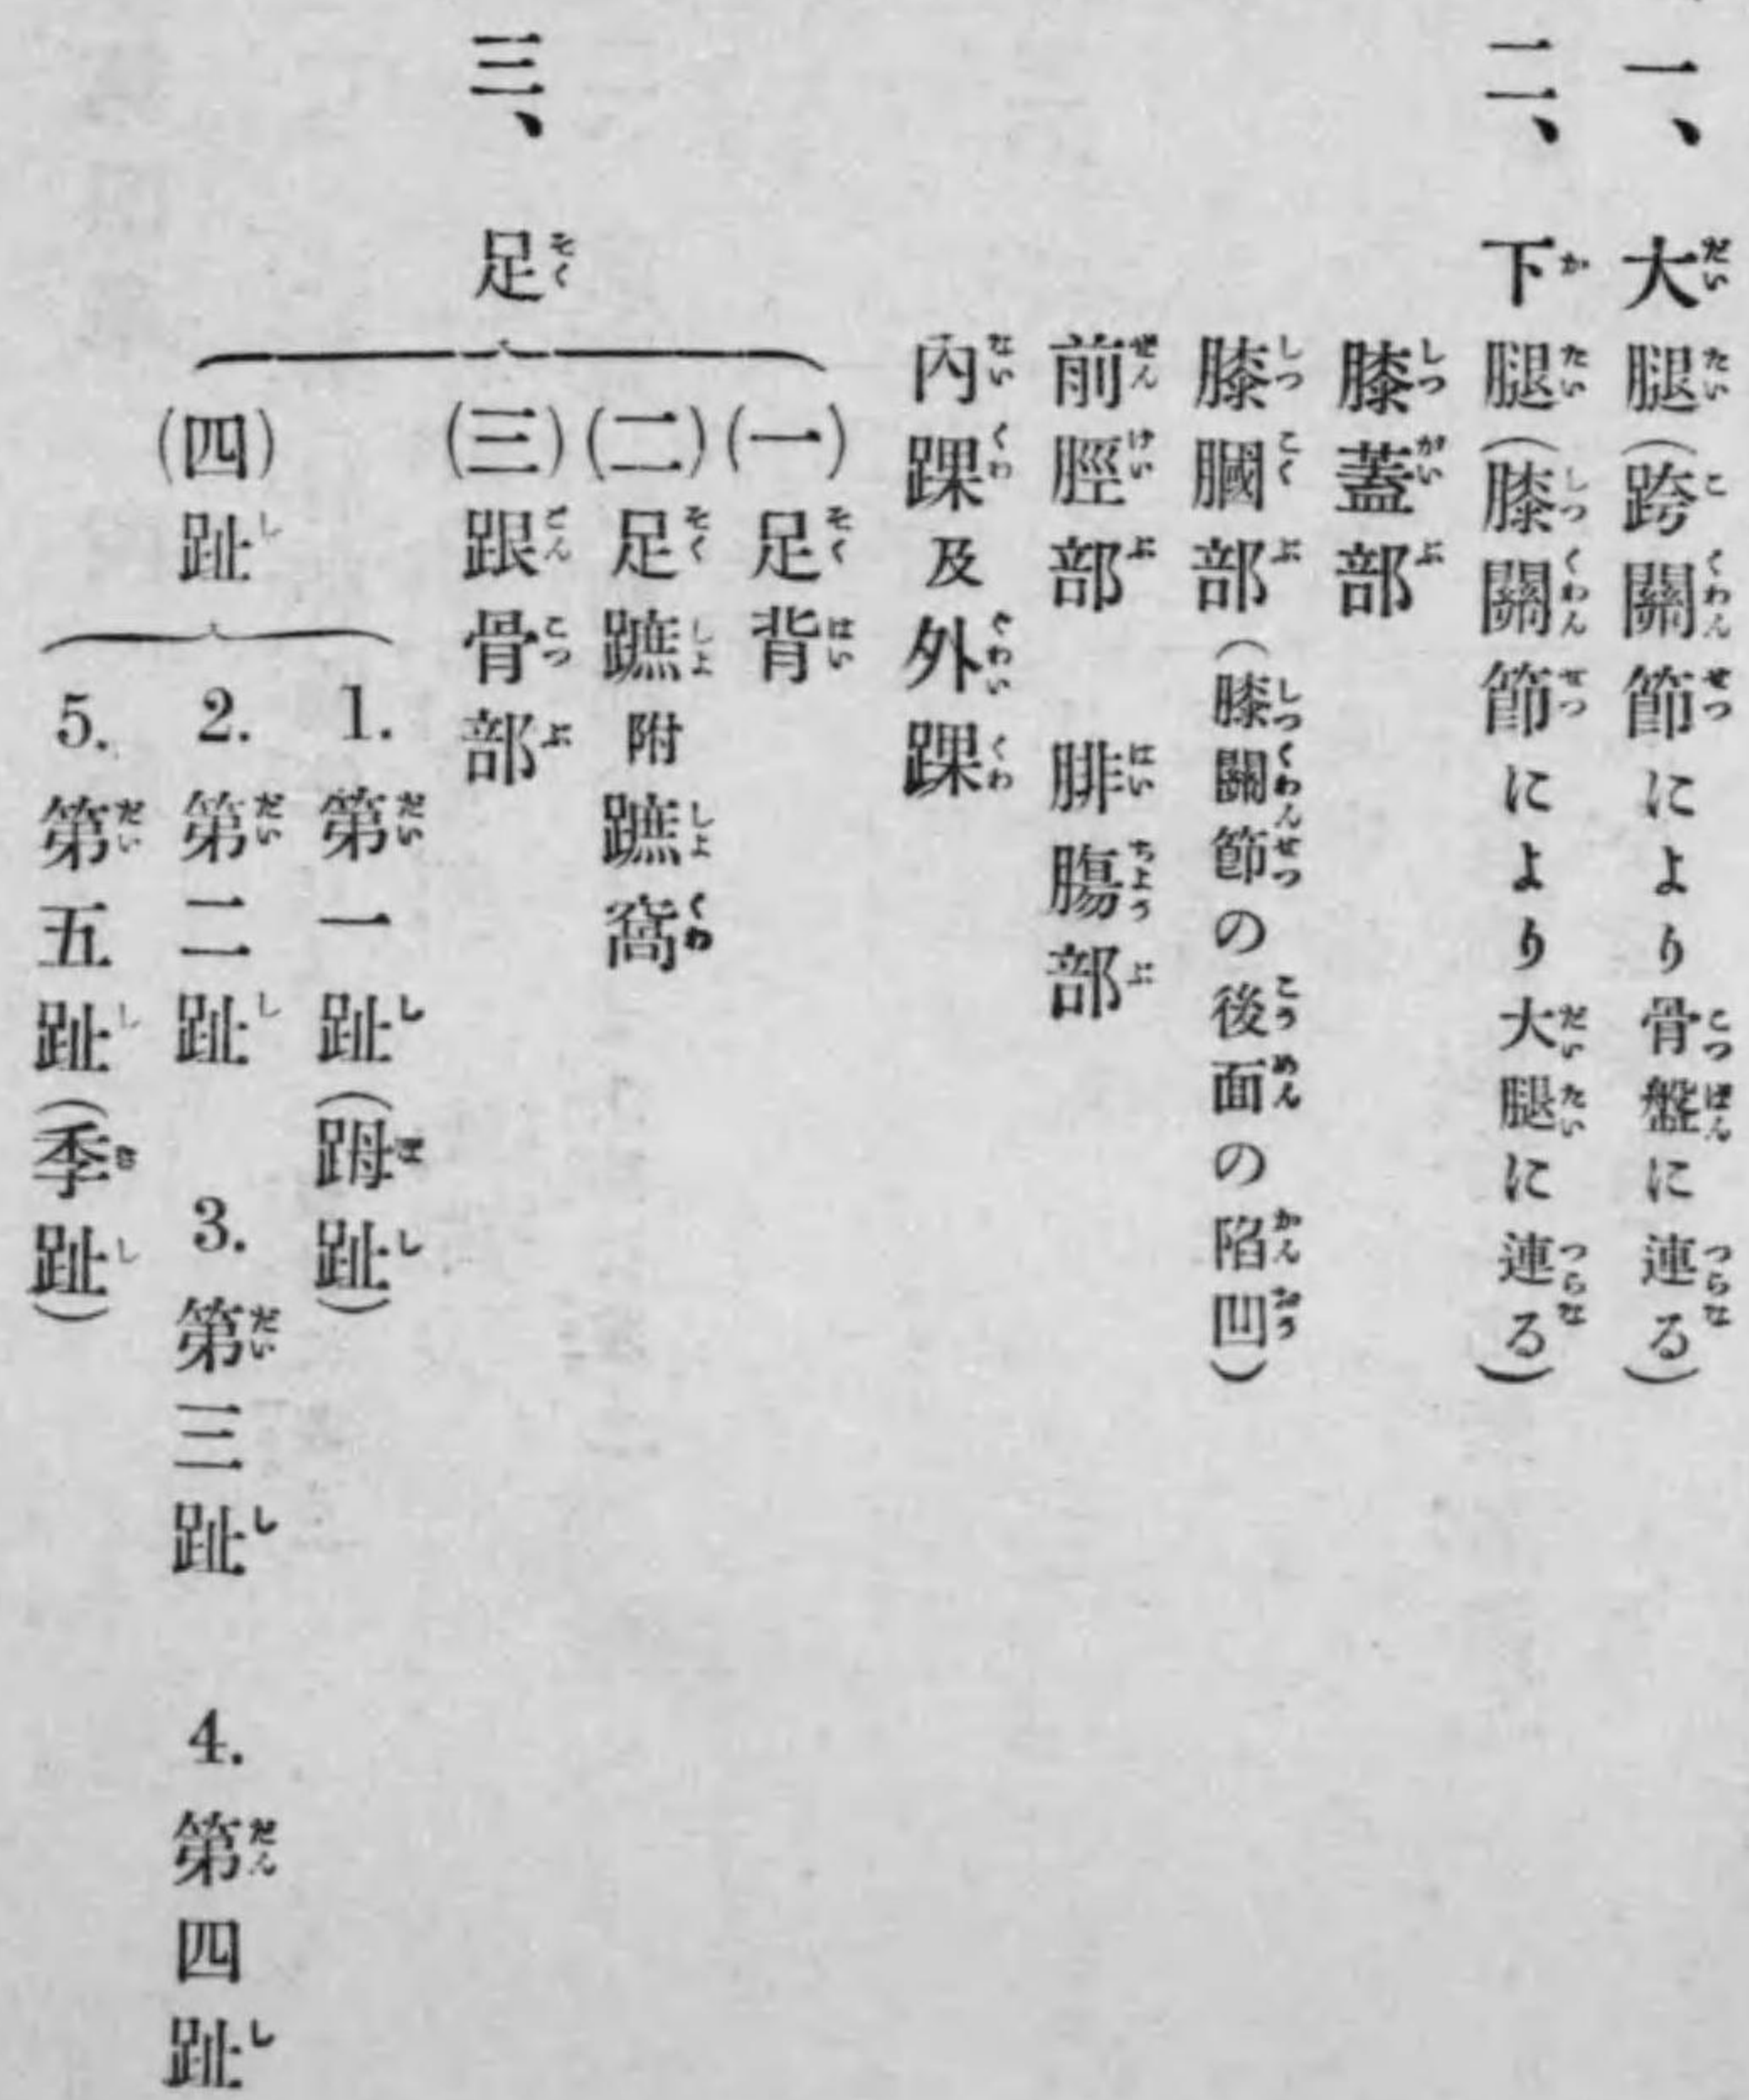 一、大腿(跨關節により骨盤に連る)
二、下腿(膝關節により大腿に連る)
膝蓋部
膝膕部(膝關節の後面の陷凹)
前脛部 腓腸部
內踝及外踝
三、足
(一)足背
(二)足蹠附蹠窩
(三)跟骨部
(四)趾
1.第一趾(踇趾)
2.第二趾 3.第三趾 4.第四趾
5.第五趾(季趾)